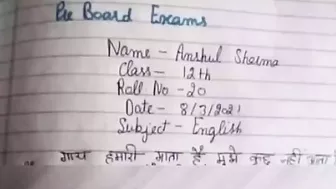 Pre Board Exams
Name - Anshul Sharma
Class - 12th
Roll No - 20
Date - 8/3/2021
Subject - English
गाय हमारी माता है, मुझे कुछ नहीं आता